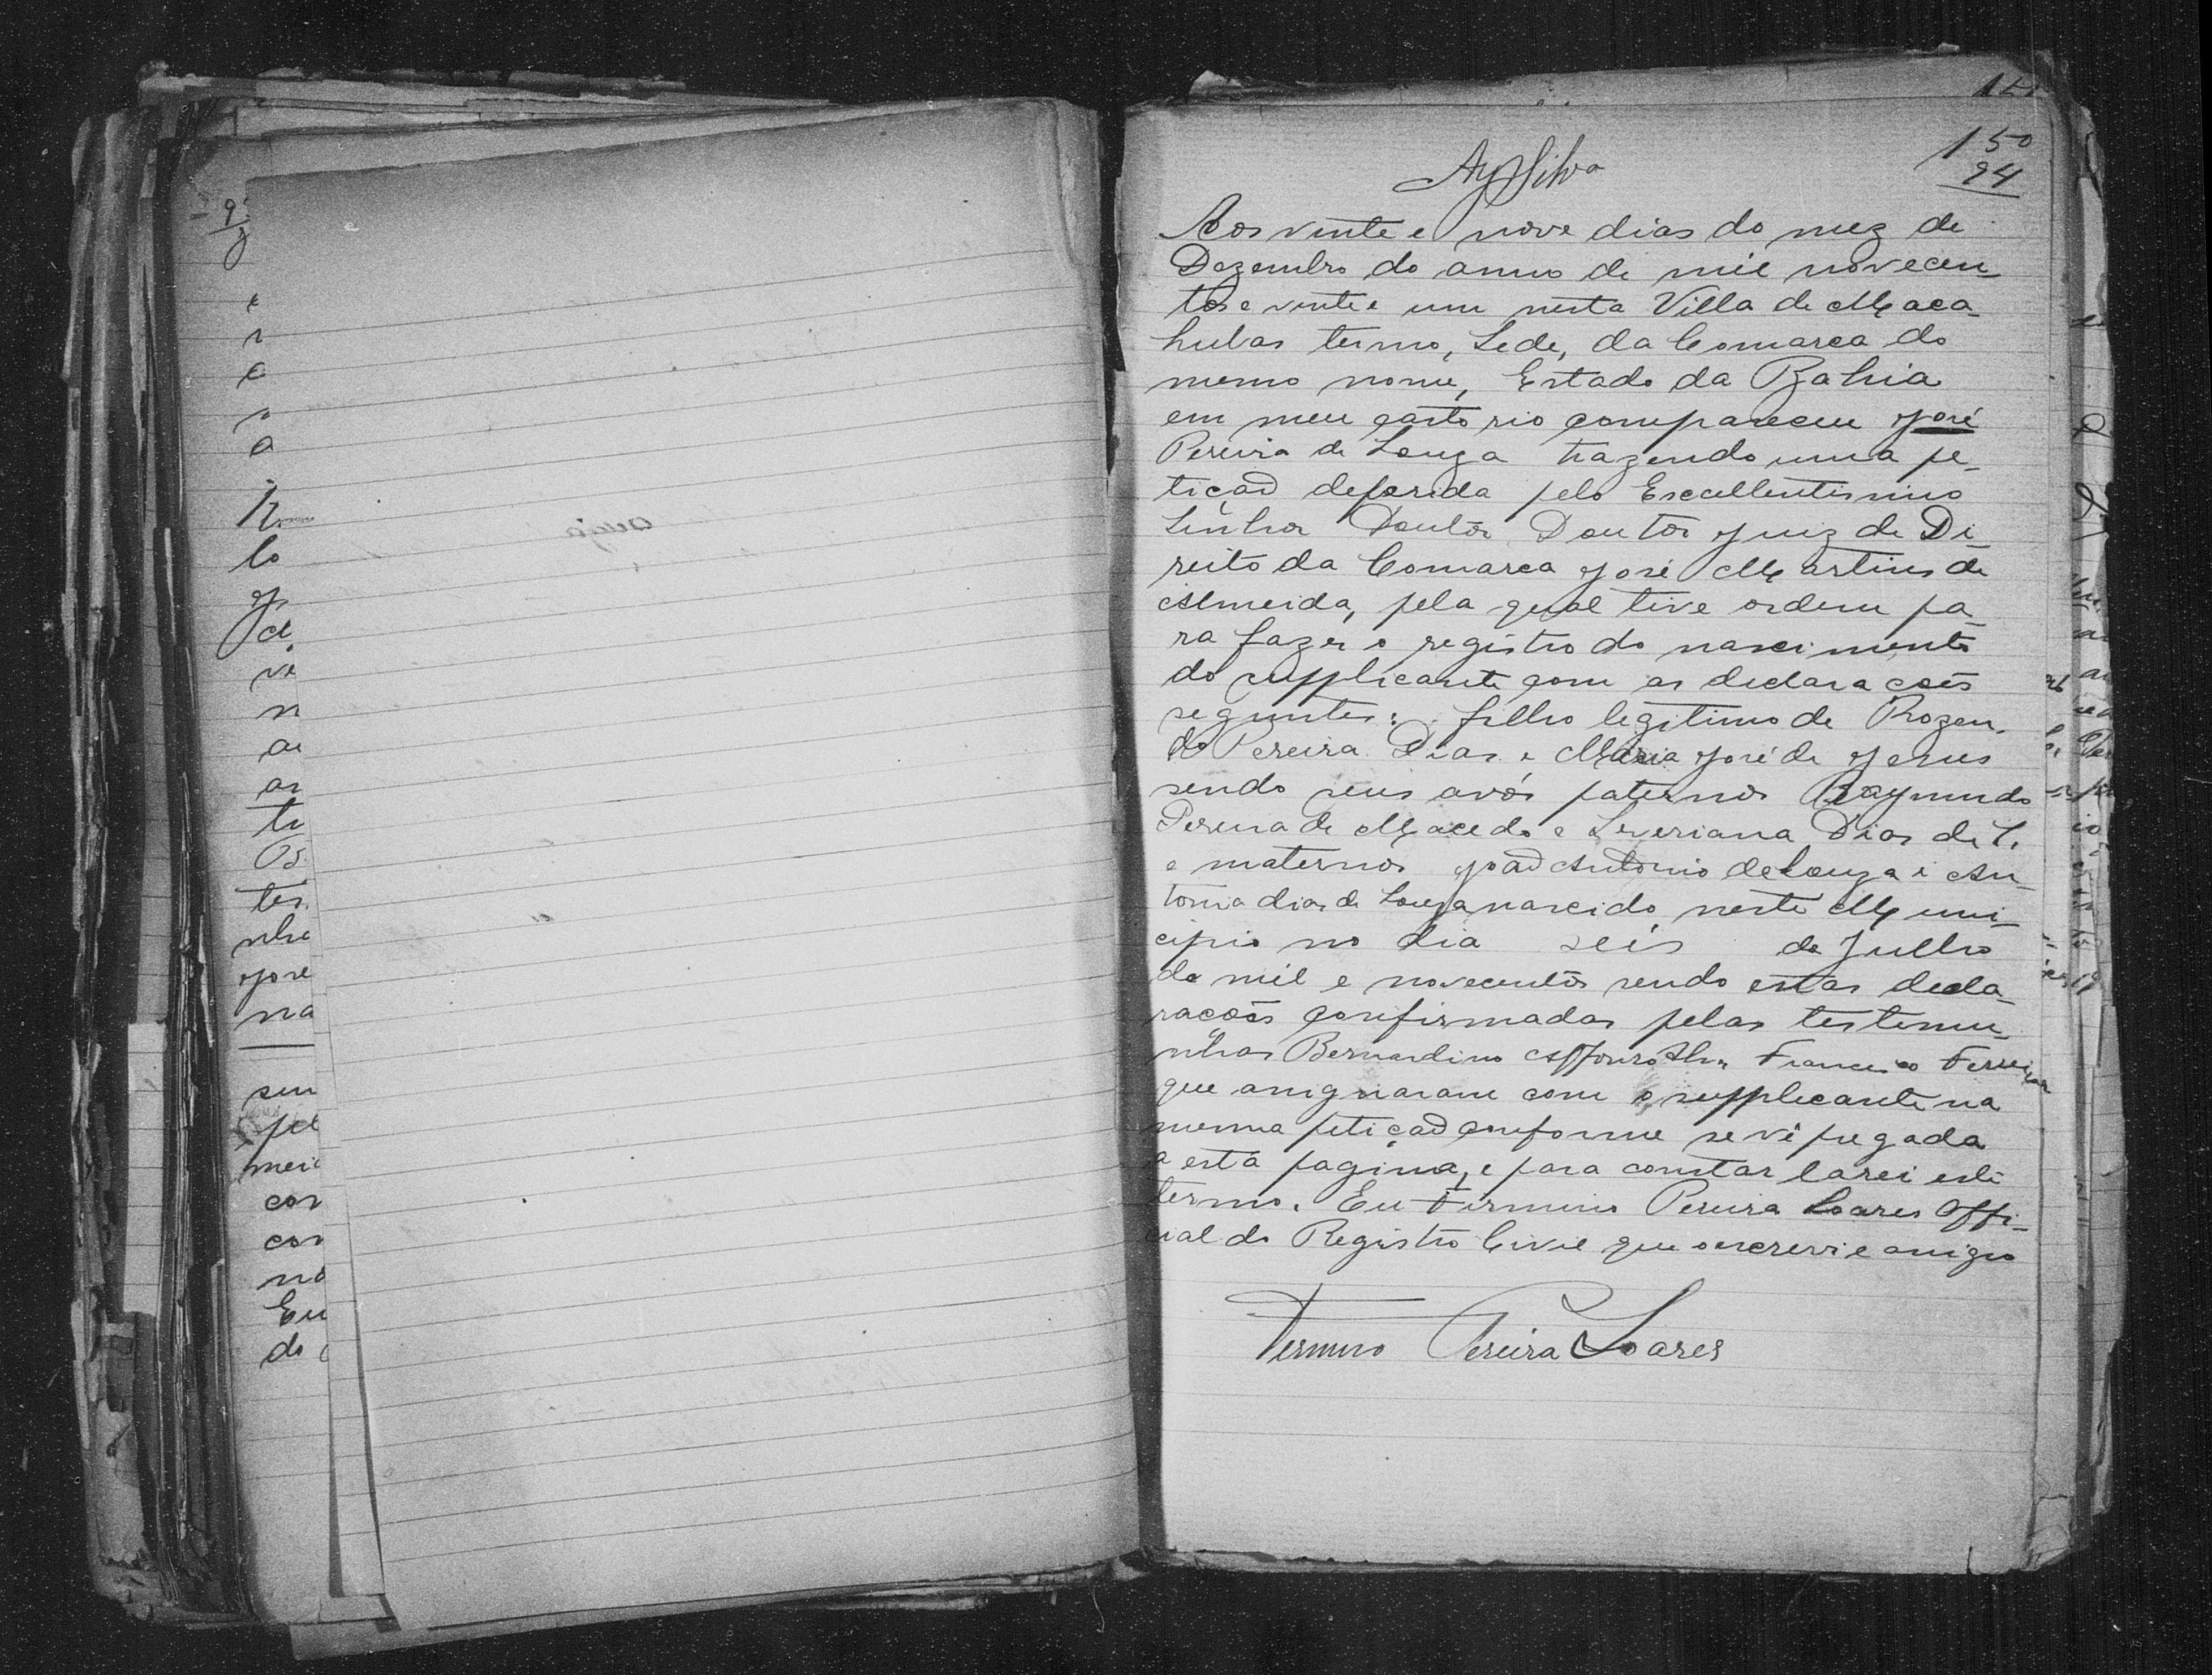 150
94
AySilva
Aos vinte e nove dias do mez de
Dezembro do anno de mil novecen-
tos e vinte e um nesta Villa de Maca-
hubas termo, Sede, da Comarca do
mesmo nome, Estado da Bahia
em meu cartorio compareceu José
Pereira de Souza trazendo uma pe-
tição deferida pelo Excellentissimo
Senhor Doutôr Doutôr Juiz de Di-
reito da Comarca José Martins de
Almeida, pela qual tive ordem pa-
ra fazer o registro do nascimento
do supplicante com as declarações
seguntes: filho legitimo de Rozen-
do Pereira Dias e Maria José de Jesus
sendo seus avós paternos Raymundo
Pereira de Macedo e Severiana Dias de S.
e maternos João Antonio de Souza e An-
tonia dias de Souza nascido neste Muni-
cipio no dia seis de Julho
de mil e novecentos sendo estas decla-
racões confirmadas pelas testemu-
nhas Bernardino Francisco Ferreira
que assignaram com o supplicante na
mesma petição conforme se vê pregada
a esta pagina, e para constar larei este
termo. Eu Firmino Pereira Soares Offi-
cial do Registro Civil que o escrevi e assigno
Firmino Pereira Soares
lo
ve
tes
nha
José
na
pel
Eu
do